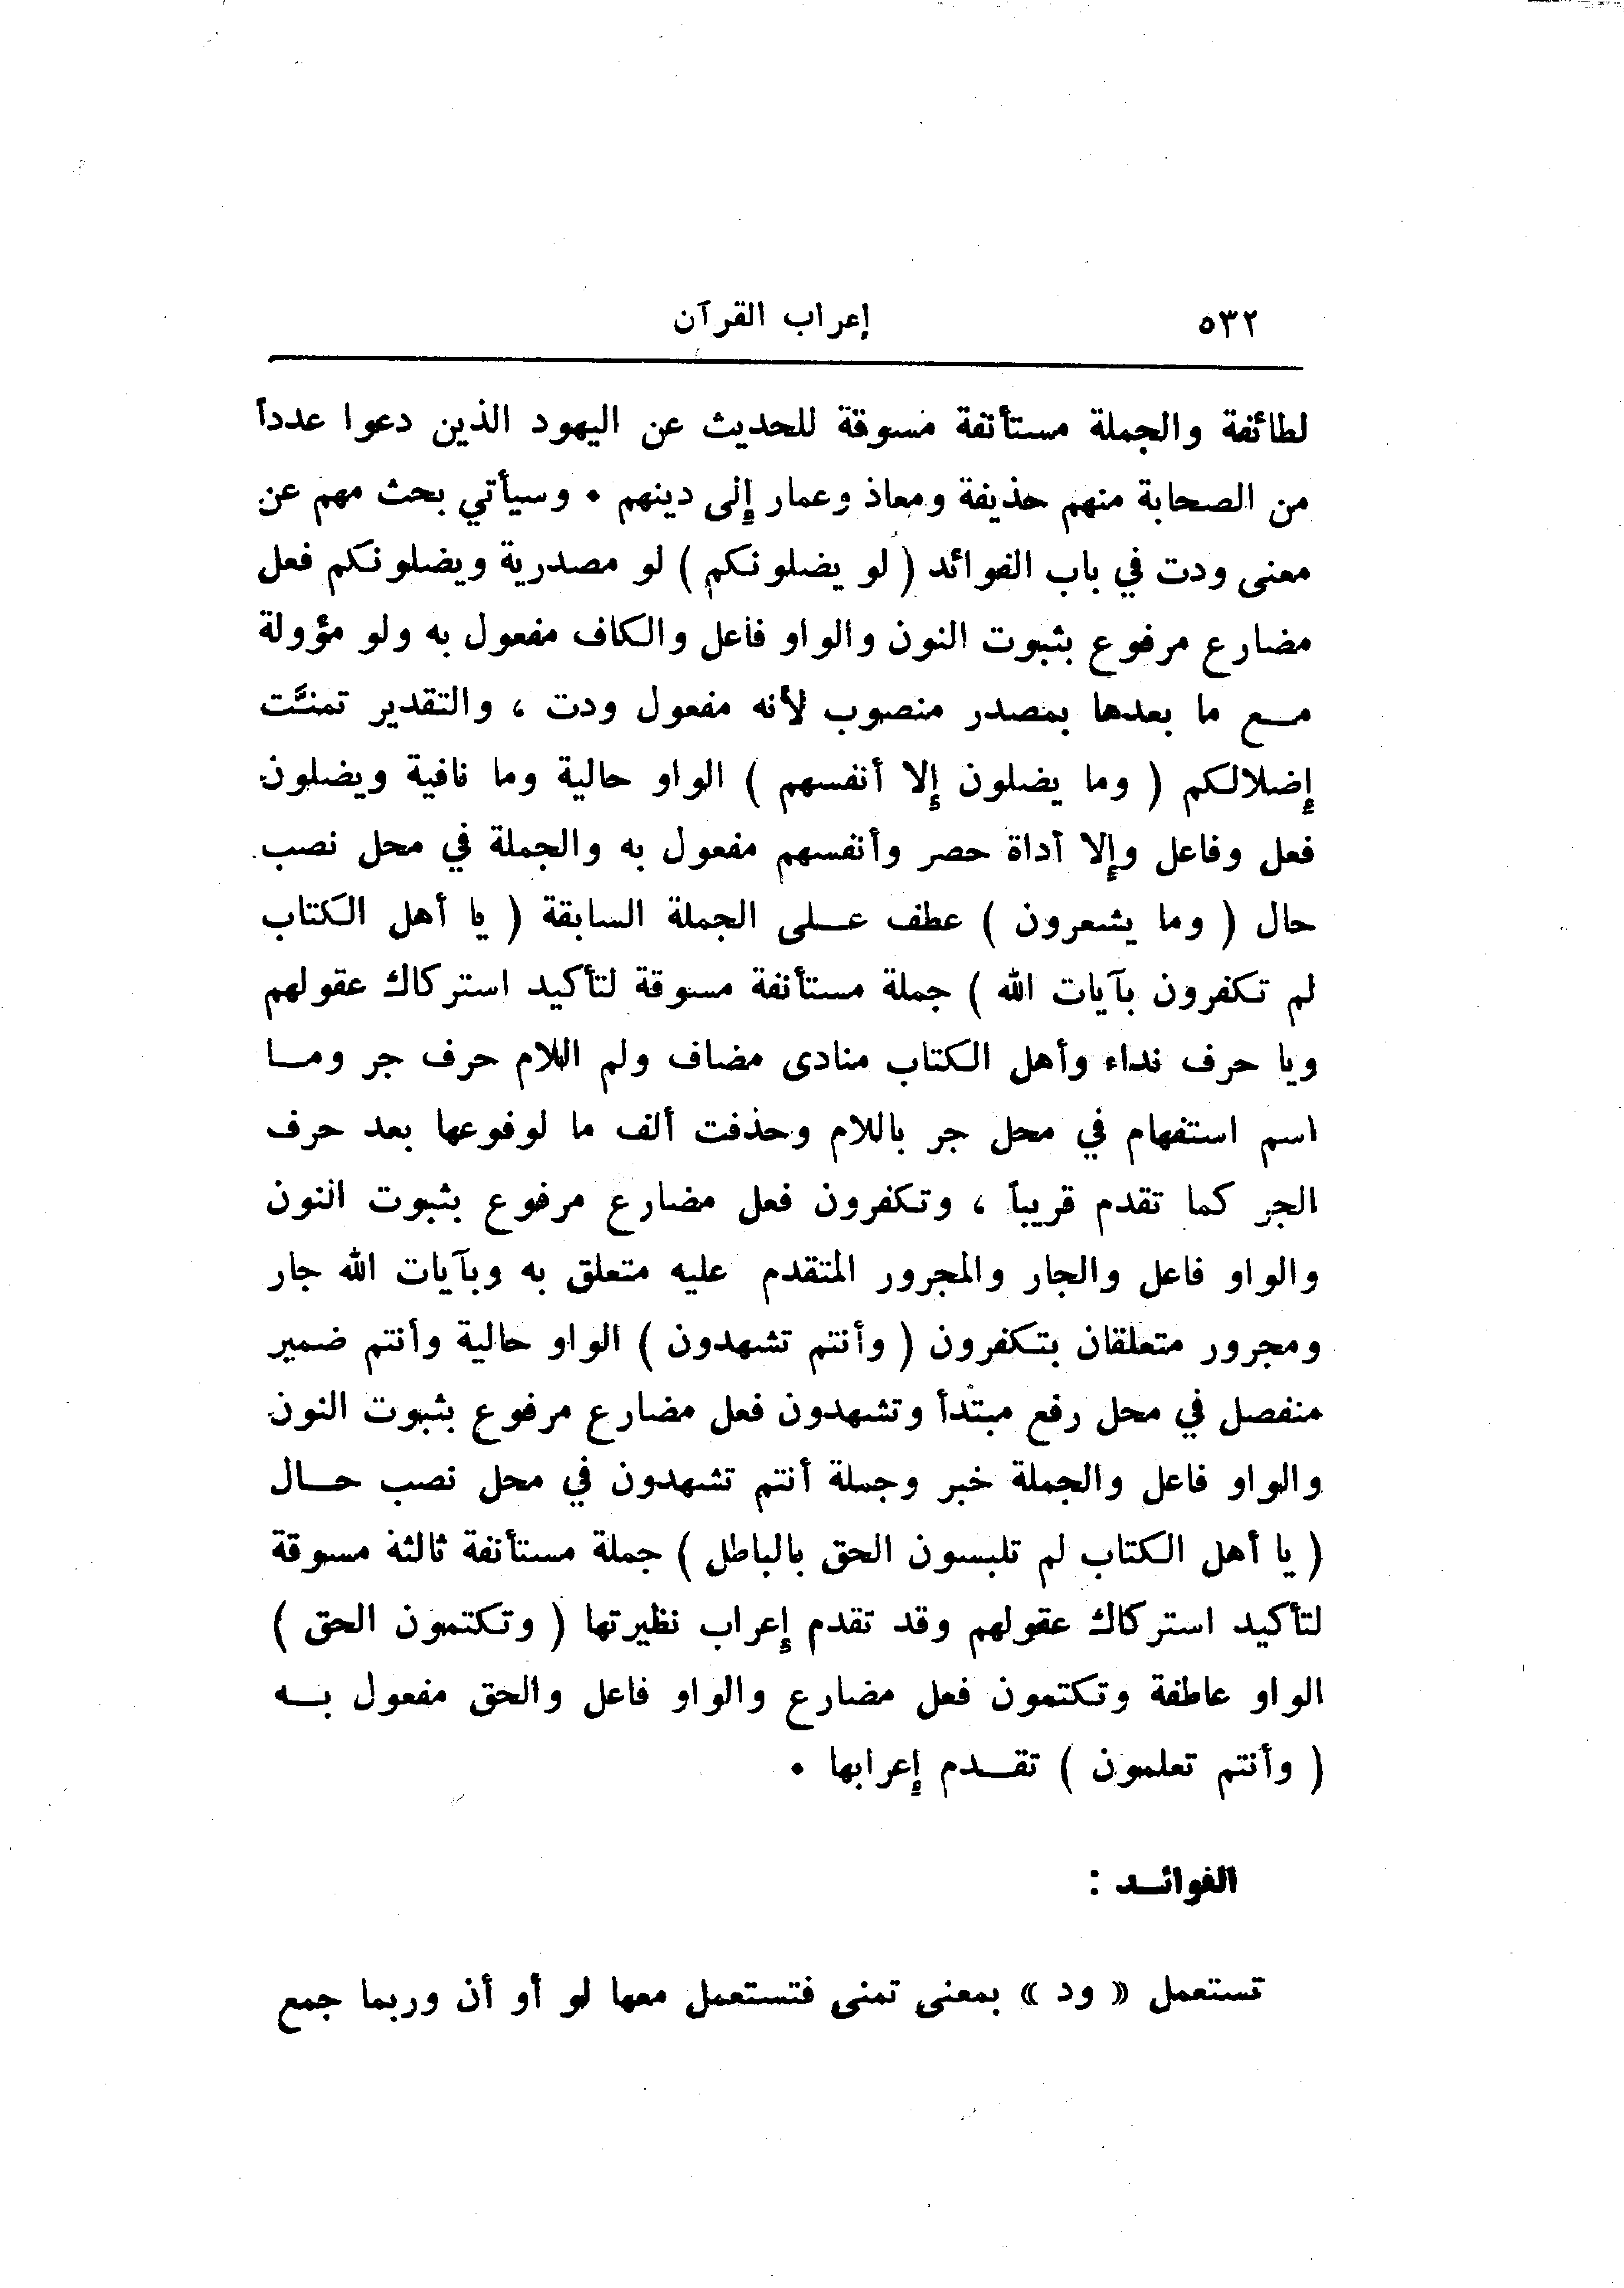 ٥٣٢ إعراب القرآن
لطائفة والجملة مستأنفة مسوقة للحديث عن اليهود الذين دعوا عدداً
من الصحابة منهم حذيفة ومعاذ وعمار إلى دينهم • وسيأتي بحث مهم عن
معنى ودت في باب الفوائد ( لو يضلونكم ) لو مصدرية ويضلونكم فعل
مضارع مرفوع بثبوت النون والواو فاعل والكاف مفعول به ولو مؤولة
مـع ما بعدها بمصدر منصوب لأنه مفعول ودت ، والتقدير تمنَّت
إضلالكم ( وما يضلون إلا أنفسهم ) الواو حالية وما نافية ويضلون
فعل وفاعل وإلا أداة حصر وأنفسهم مفعول به والجملة في محل نصب
حال ( وما يشعرون ) عطف عـلى الجملة السابقة ( يا أهل الكتاب
لم تكفرون بآيات الله ) جملة مستأنفة مسوقة لتأكيد استركاك عقولهم
ويا حرف نداء وأهل الكتاب منادى مضاف ولم اللام حرف جر ومـا
اسم استفهام في محل جر باللام وحذفت ألف ما لوقوعها بعد حرف
الجر كما تقدم قريباً ، وتكفرون فعل مضارع مرفوع بثبوت النون
والواو فاعل والجار والمجرور المتقدم عليه متعلق به وبآيات الله جار
ومجرور متعلقان بتكفرون ( وأنتم تشهدون ) الواو حالية وأنتم ضمير
منفصل في محل رفع مبتدأ وتشهدون فعل مضارع مرفوع بثبوت النون
والواو فاعل والجملة خبر وجملة أنتم تشهدون في محل نصب حـال
( يا أهل الكتاب لم تلبسون الحق بالباطل ) جملة مستأنفة ثالثة مسوقة
لتأكيد استركاك عقولهم وقد تقدم إعراب نظيرتها ( وتكتمون الحق )
الواو عاطفة وتكتمون فعل مضارع والواو فاعل والحق مفعول بـه
( وأنتم تعلمون ) تقـدم إعرابها •
الفوائـد :
تستعمل « ود » بمعنى تمنى فتستعمل معها لو أو أن وربما جمع